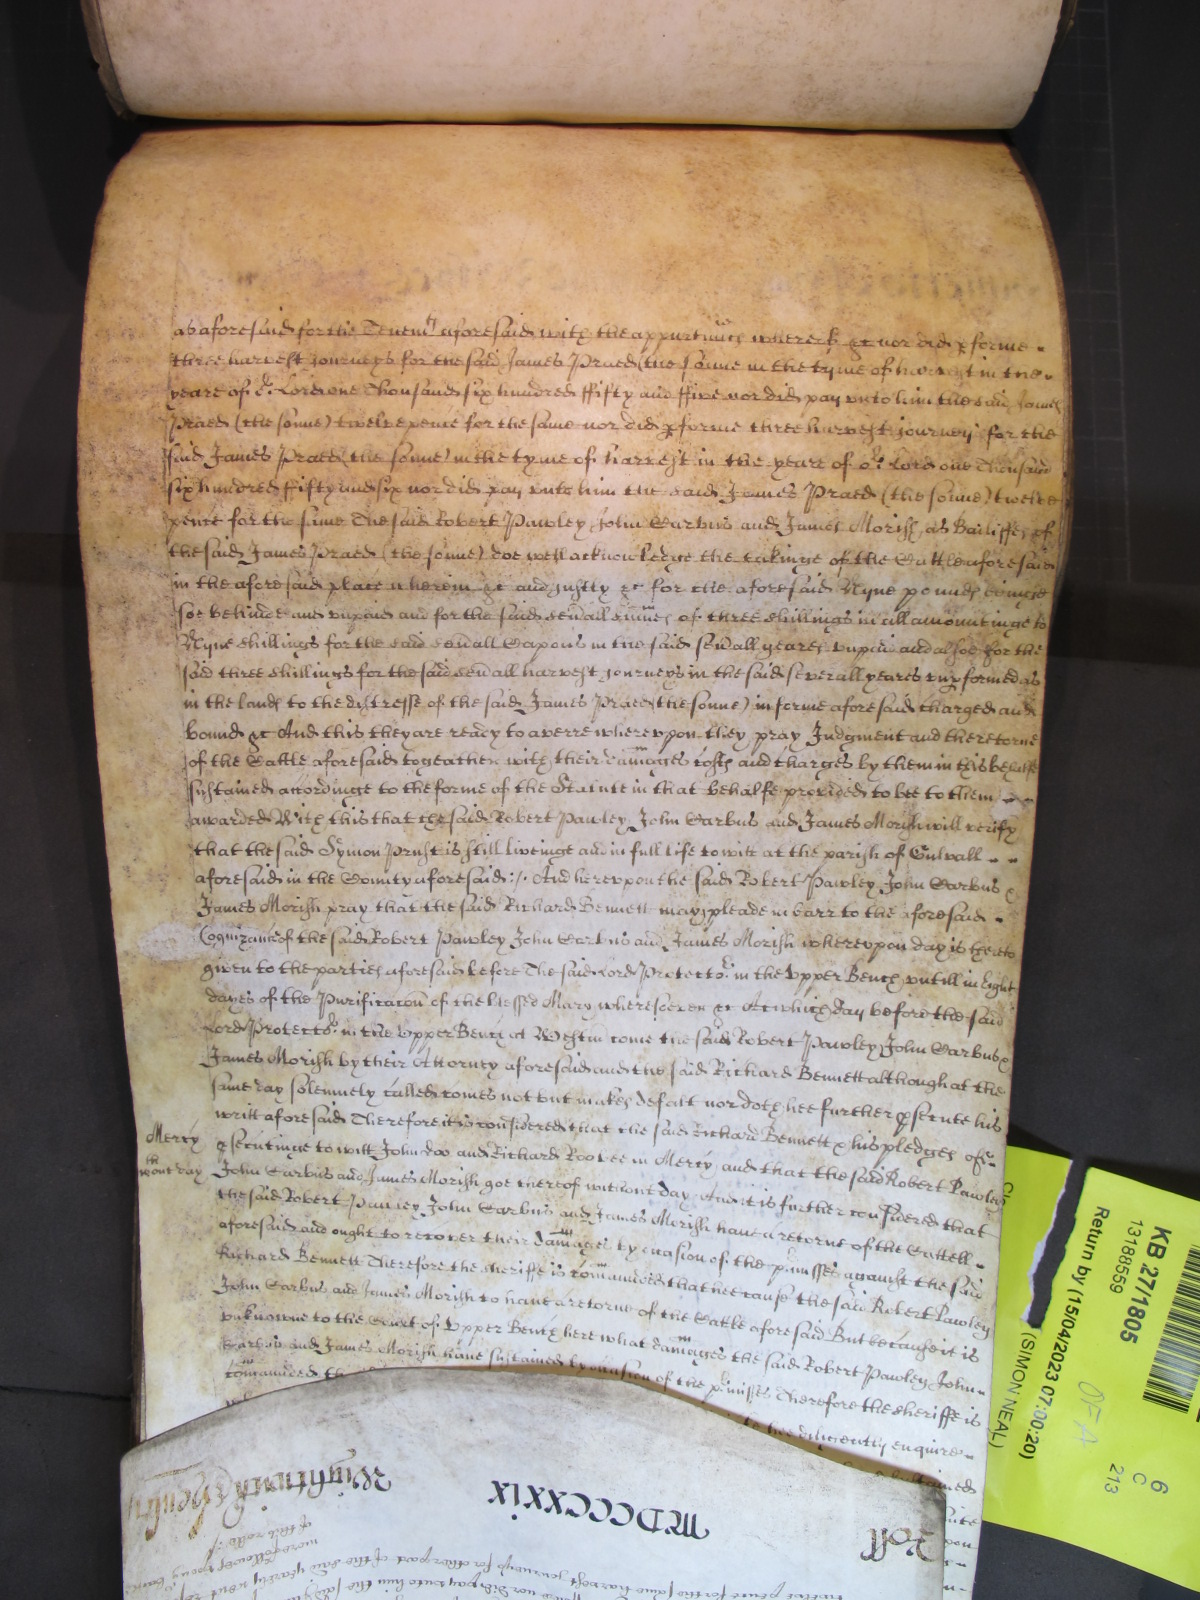 as aforesaid for the Tenemt aforesaid with the appurtnncs wherein &c nor did pforme
three harvest journeys for the said James Praed (the sonne in the tyme of harvest in the
yeare of or Lord one Thousand six hundred ffifty and ffive nor did pay unto him the said James
Praed (the sonne) twelve pence for the same nor did pforme three harvest journeys for the
said James Praed (the sonne) in the tyme of harvest in the yeare of or Lord one Thousand
six hundred ffifty and six nor did pay unto him the said James Praed (the sonne) twelve
pence for the same The said Robert Pawley John Carbus and James Morish as Bailiffes of
the said James Praed (the sonne) doe well acknowledge the takinge of the Cattle aforesaid
in the aforesaid place wherein &c and justly &c for the aforesaid Nyne pounds beinge
soe behinde and unpaid and for the said sevall summes of three shillings in all amountinge to
Nyne shillings for the said sevall Capons in the said sevall yeares unpaid and alsoe for the
said three shillings for the said sevall harvest journeys in the said severall yeares unpformed as
in the lands to the distresse of the said James Praed (the sonne) in forme aforesaid charged and
bound &c And this they are ready to averre whereupon they pray Judgment and the retorne
of the Cattle aforesaid togeather with their damages costs and charges by them in this behalfe
sustained accordinge to the forme of the Statute in that behalfe provided to bee to them
awarded With this that the said Robert Pawley John Carbus and James Morish will verify
that the said Symon Prust is still liveinge and in full life to witt at the parish of Gulvall
aforesaid in the County aforesaid :/. And hereupon the said Robert Pawley John Carbus &
James Morish pray that the said Richard Bennett may pleade in barr to the aforesaid
Cognizance of the said Robert Pawley John Carbus and James Morish whereupon day is thereto
given to the parties aforesaid before The said Lord Protector in the Upper Bench untill in Eight
dayes of the Purificacon of the blessed Mary wheresoever &c At which day before the said
Lord Protector in the Upper Bench at Westm come the said Robert Pawley John Carbus &
James Morish by their Attorney aforesaid and the said Richard Bennett although at the
same day solemnely called comes not but makes defalt nor doth hee further psecute his
writt aforesaid Therefore it is considered that the said Richard Bennett & his pledges of
Mercy
psecutinge to witt John Doo and Richard Roo bee in Mercy and that the said Robert Pawley
wthout day
John Carbus and James Morish goe thereof without day And it is further considered that
the said Robert Pawley John Carbus and James Morish have a retorne of the Cattell
aforesaid and ought to recover their damages by occasion of the pmisses against the said
Richard Bennett Therefore the sheriffe is comanded that hee cause the said Robert Pawley
John Carbus and James Morish to have a retorne of the Cattle aforesaid But because it is
unknowne to the Court of Upper Bench here what damages the said Robert Pawley John
Carbus and James Morish have sustained by occasion of the pmisses Therefore the sheriffe is
comanded th
hee diligently enquire
Roll
MDCCCXXIX
Wightwick
of this rolle
KB 27/1805
13188559
Return by (15/04/2023 07:00:20)
(SIMON NEAL)
OFA
6
C
213